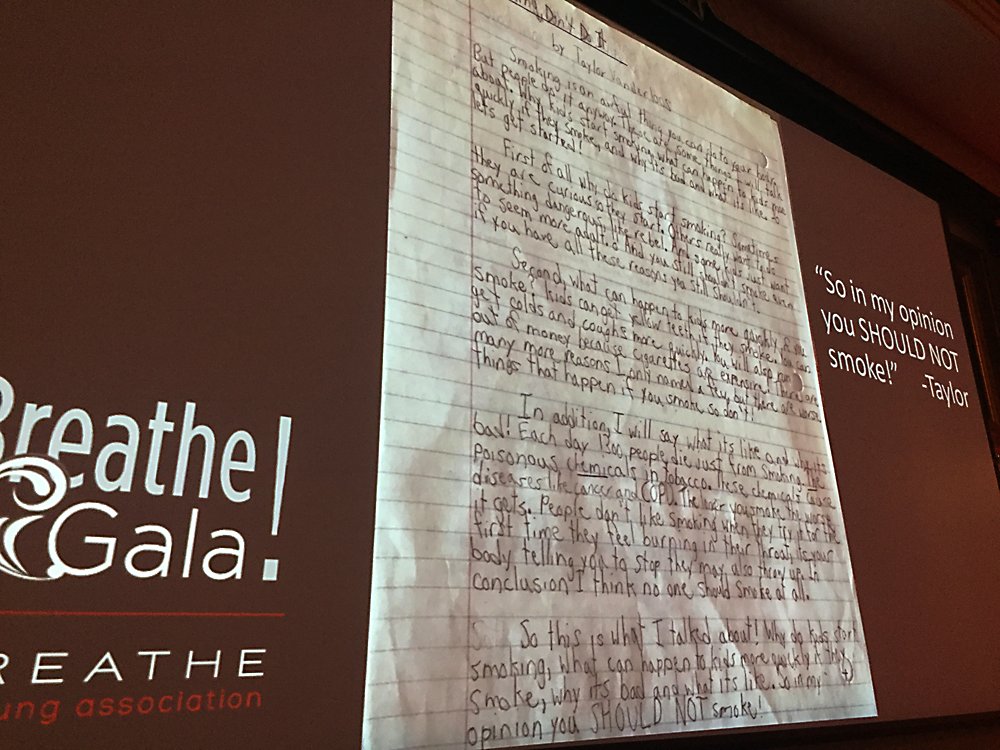 Breathe
Gala!
BREATHE
ung association
Don't Do It
by Taylor
Smoking is an awful thing you can do to your body.
But people do it anyway. These are some things I will talk
about. Why kids start smoking, what can happen to kids more
quickly if they smoke, and why its bad and what its like. So
lets get started!
First of all why do kids start smoking? Sometimes
they are curious so they start. Others really want to do
something dangerous like rebel. And some kids just want
to seem more adult. And you still shouldn't smoke even
if you have all these reasons you still shouldn't!
Second, what can happen to kids more quickly if you
smoke? Kids can get yellow teeth if they smoke. You can
get colds and coughs more quickly. You will also run
out of money because cigarettes are expensive. There are
many more reasons I only named a few, but there are worse
things that happen if you smoke so don't!
In addition, I will say what its like and why its
bad! Each day 1300 people die just from smoking. The
poisonous chemicals in tobacco. These chemicals cause
diseases like cancer and COPD. The more you smoke the worse
it gets. People don't like smoking when they try it for the
first time they feel burning in their throat. Its your
body telling you to stop they may also throw up. In
conclusion I think no one should smoke at all.
So this is what I talked about! Why do kids start
smoking, what can happen to kids more quickly if they
smoke, why its bad and what its like. So in my
opinion you SHOULD NOT smoke!
“So in my opinion
you SHOULD NOT
smoke!” -Taylor